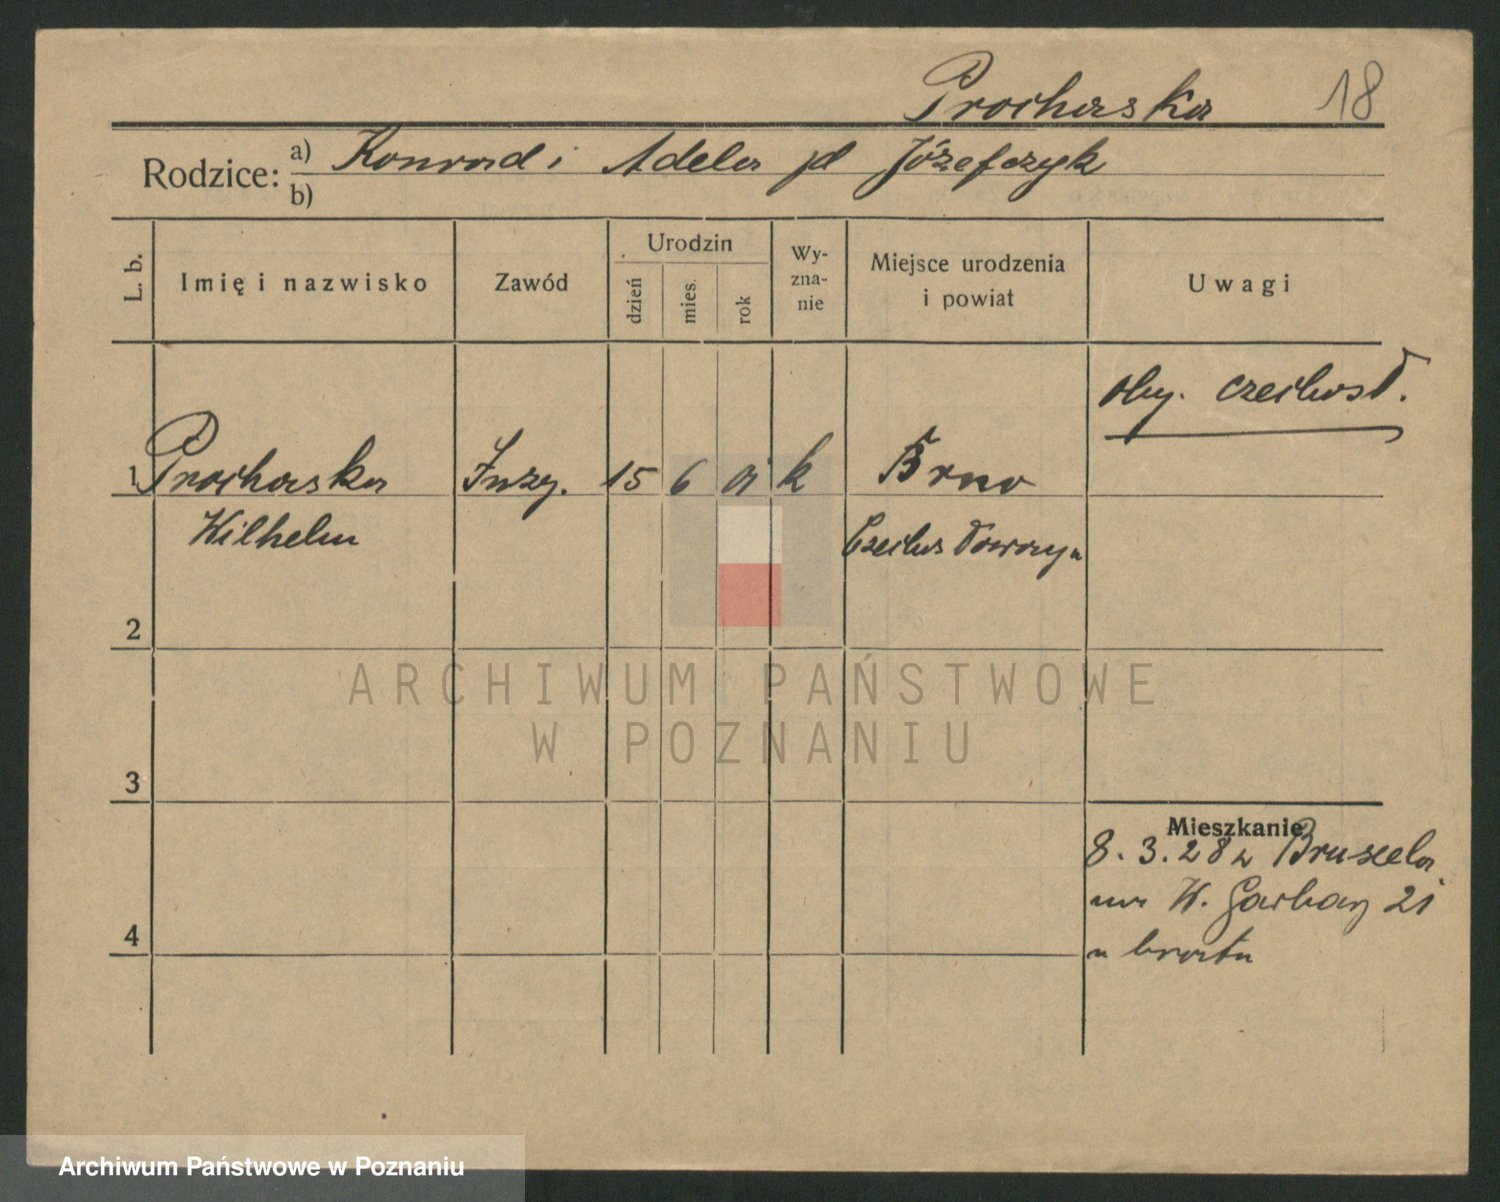 Prochaska 18
Rodzice: a) Konrad i Adela zd Józefczyk
b)
L. b. Imię i nazwisko Zawód Urodzin dzień mies. rok Wyznanie Miejsce urodzenia i powiat Uwagi
oby. czechosł.
1 Prochaska Inży. 15 6 01 k Brno
Wilhelm Czechosłowacya
2
ARCHIWUM PAŃSTWOWE
W POZNANIU
3
Mieszkanie
8. 3. 28 z Bruxela
na W. Garbary 21
u brata
4
Archiwum Państwowe w Poznaniu